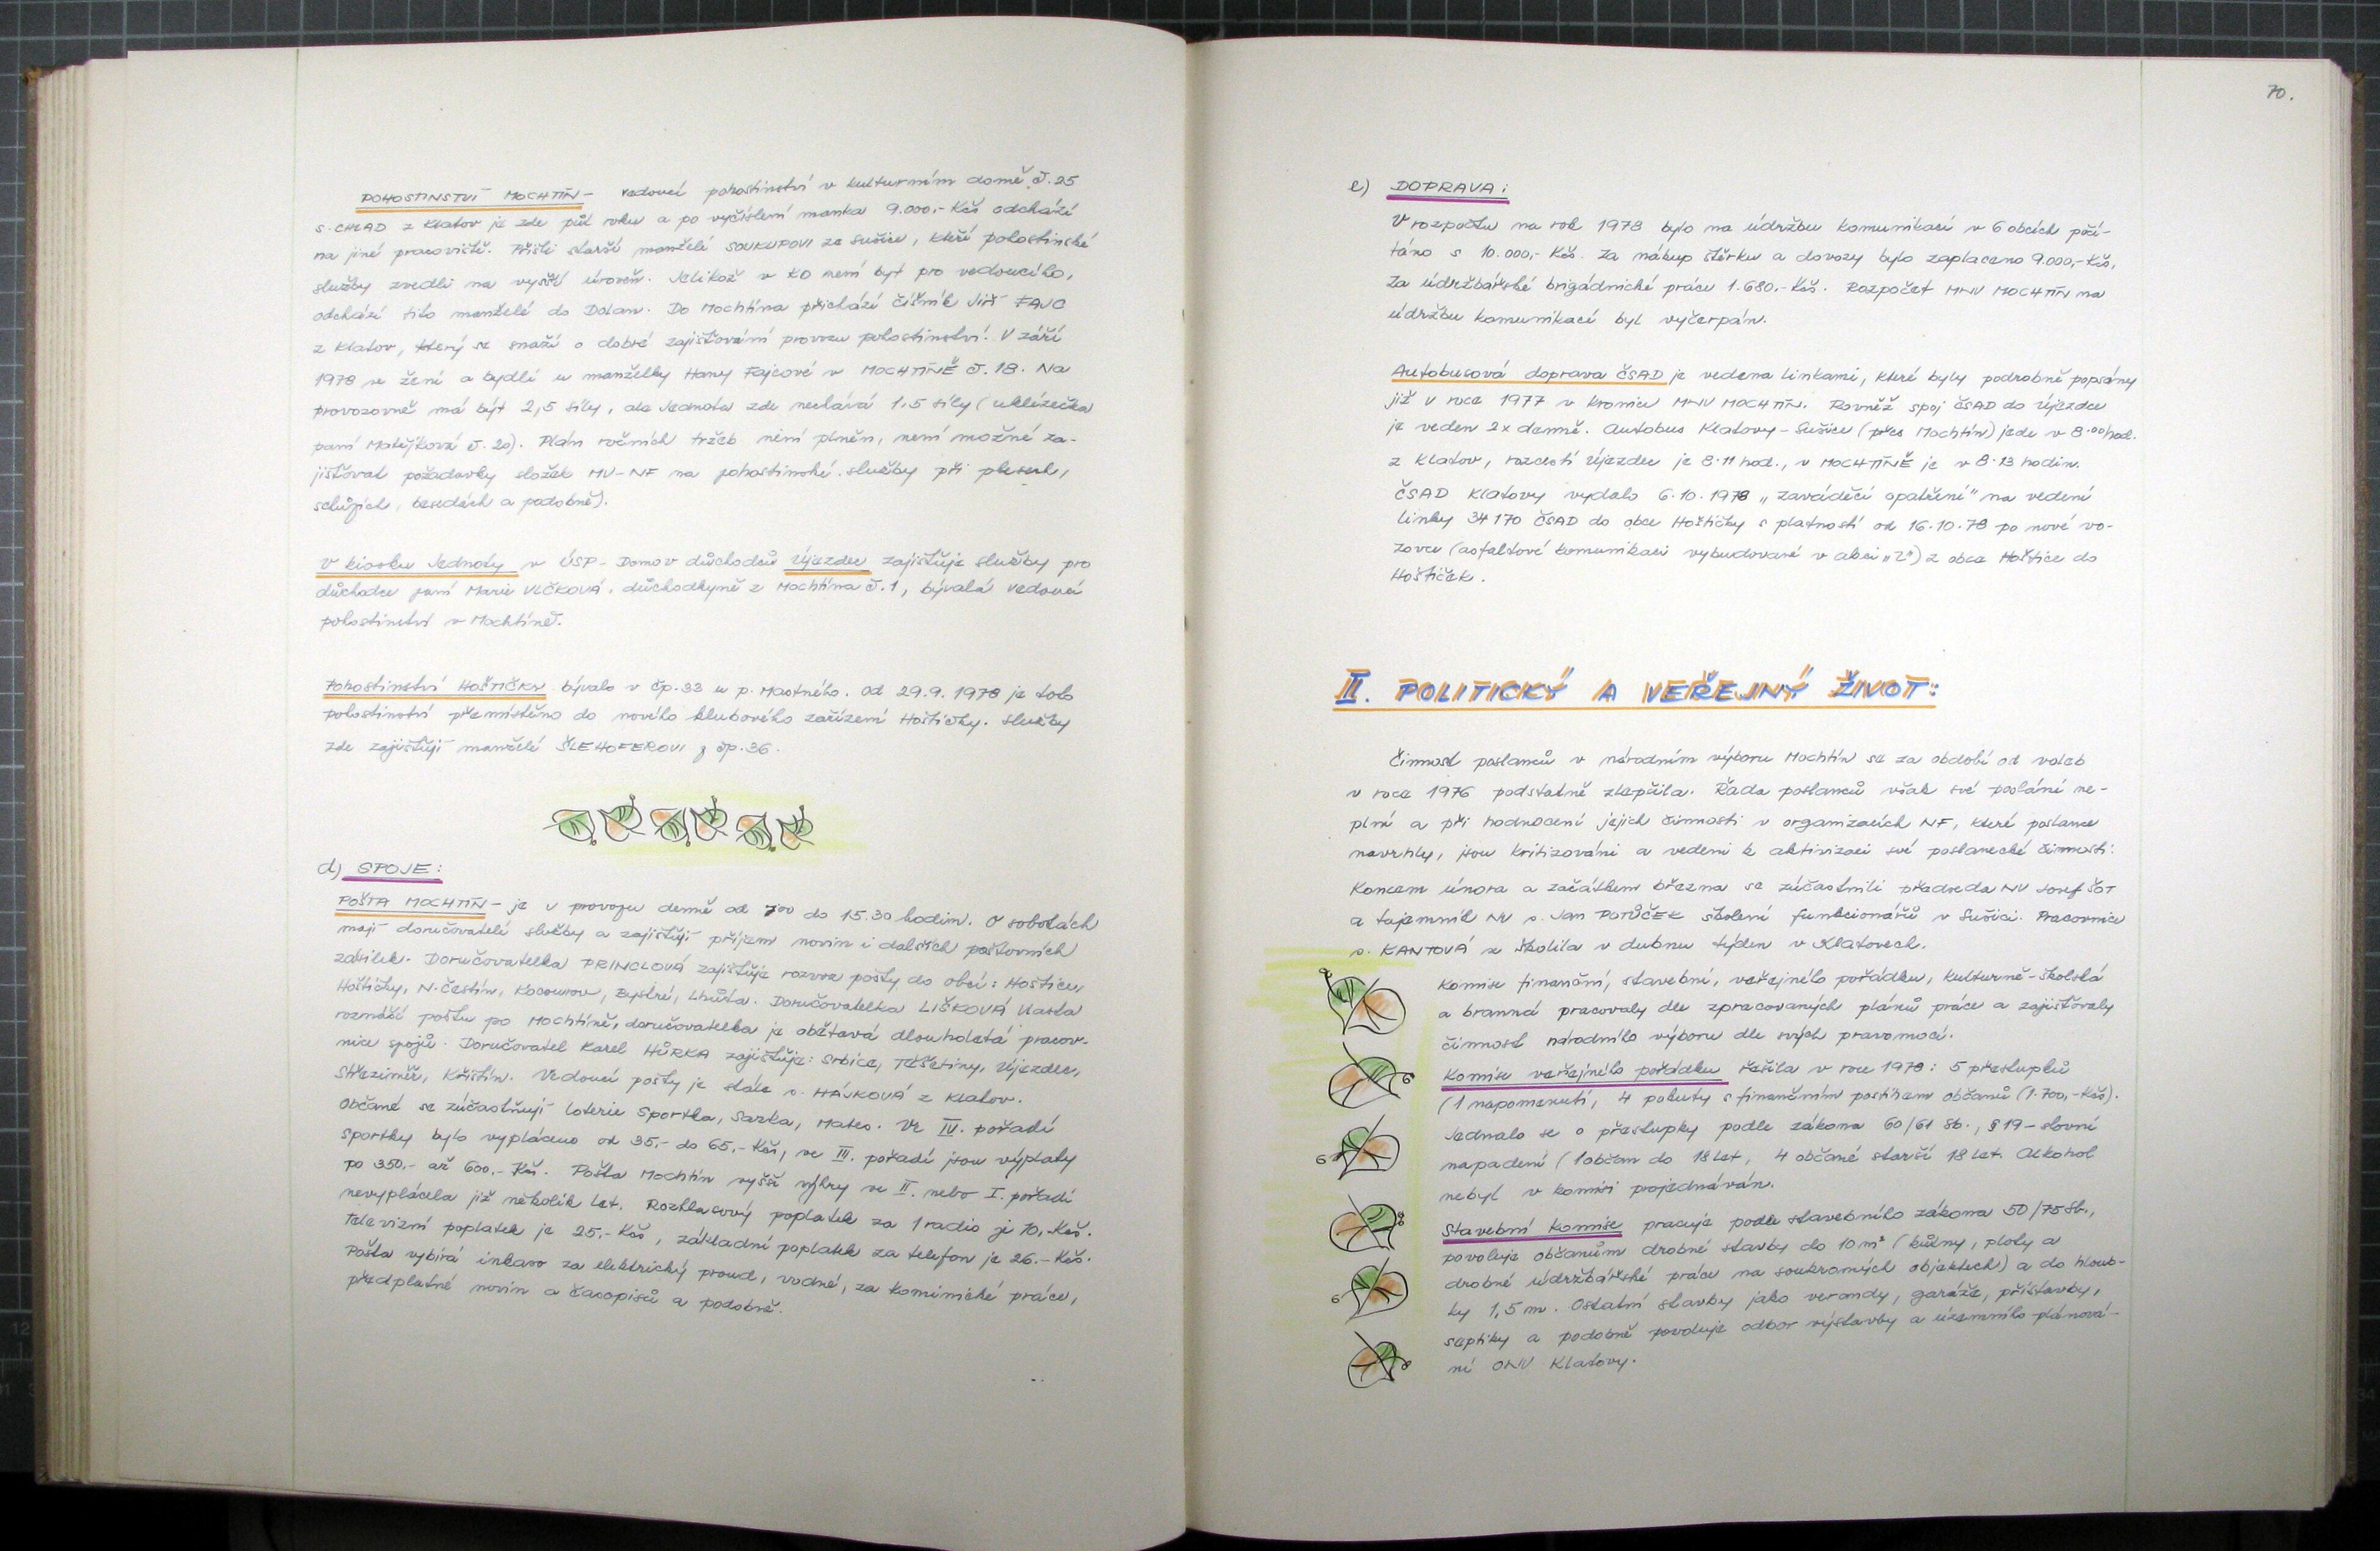 POHOSTINSTVÍ MOCHTÍN - vedoucí pohostinství v kulturním domě č. 25
s. CHLAD z Klatov je zde půl roku a po vyčíslení manka 9.000,- Kčs odchází
na jiné pracoviště. Přišli starší manželé SOUKUPOVI ze Sušice, kteří pohostinské
služby zvedli na vyšší úroveň. Jelikož v KD není byt pro vedoucího,
odchází tito manželé do Dolan. Do Mochtína přichází číšník Jiří FAJC
z Klatov, který se snaží o dobré zajišťování provozu pohostinství. V září
1978 se žení a bydlí u manželky Hany Fajcové v MOCHTÍNĚ č. 18. Na
provozovně má být 2,5 síly, ale Jednota zde nechává 1,5 síly (uklízečka
paní Matějková č. 20). Plán ročních tržeb není plněn, není možné za-
jišťovat požadavky složek MV-NF na pohostinské služby při plesech,
schůzích, besedách a podobně).
V kiosku Jednoty v ÚSP - Domov důchodců Újezdec zajišťuje služby pro
důchodce paní Marie VLČKOVÁ, důchodkyně z Mochtína č. 1, bývalá vedoucí
pohostinství v Mochtíně.
Pohostinství HOŠTIČKY bývalo v čp. 33 u p. Mastného. Od 29.9. 1978 je toto
pohostinství přemístěno do nového klubového zařízení Hoštičky. Služby
zde zajišťují manželé ŠLEHOFEROVI z čp. 36.
d) SPOJE:
POŠTA MOCHTÍN - je v provozu denně od 7⁰⁰ do 15.30 hodin. O sobotách
mají doručovatelé služby a zajišťují příjem novin i dalších poštovních
zásilek. Doručovatelka PRINCLOVÁ zajišťuje rozvoz pošty do obcí: Hoštice,
Hoštičky, N. Čestín, Kocourov, Bystré, Lhůta. Doručovatelka LIŠKOVÁ Vlasta
roznáší poštu po Mochtíně, doručovatelka je obětavá dlouholetá pracov-
nice spojů. Doručovatel Karel HŮRKA zajišťuje: Srbice, Těšetiny, Újezdec,
Střeziměř, Kříštín. Vedoucí pošty je stále s. HÁJKOVÁ z Klatov.
Občané se zúčastňují loterie Sportka, Sazka, Mates. Ve IV. pořadí
Sportky bylo vypláceno od 35,- do 65,- Kčs, ve III. pořadí jsou výplaty
po 350,- až 600,- Kčs. Pošta Mochtín vyšší výhry ve II. nebo I. pořadí
nevyplácela již několik let. Rozhlasový poplatek za 1 radio je 10,- Kčs.
Televizní poplatek je 25,- Kčs, základní poplatek za telefon je 26,- Kčs.
Pošta vybírá inkaso za elektrický proud, vodné, za kominické práce,
předplatné novin a časopisů a podobně.
70.
e) DOPRAVA:
V rozpočtu na rok 1978 bylo na údržbu komunikací v 6 obcích počí-
táno s 10.000,- Kčs. Za nákup štěrku a dovozy bylo zaplaceno 9.000,- Kčs,
za údržbářské brigádnické práce 1.680,- Kčs. Rozpočet MNV MOCHTÍN na
údržbu komunikací byl vyčerpán.
Autobusová doprava ČSAD je vedena linkami, které byly podrobně popsány
již v roce 1977 v kronice MNV MOCHTÍN. Rovněž spoj ČSAD do Újezdce
je veden 2x denně. Autobus Klatovy - Sušice (přes Mochtín) jede v 8.⁰⁰ hod.
z Klatov, rozcestí Újezdec je 8.11 hod., v MOCHTÍNĚ je v 8.13 hodin.
ČSAD Klatovy vydalo 6.10.1978 „zaváděcí opatření" na vedení
linky 34170 ČSAD do obce Hoštičky s platností od 16.10.78 po nové vo-
zovce (asfaltové komunikaci vybudované v akci „Z") z obce Hoštice do
Hoštiček.
II. POLITICKÝ A VEŘEJNÝ ŽIVOT:
Činnost poslanců v národním výboru Mochtín se za období od voleb
v roce 1976 podstatně zlepšila. Řada poslanců však své poslání ne-
plní a při hodnocení jejich činnosti v organizacích NF, které poslance
navrhly, jsou kritizováni a vedeni k aktivizaci své poslanecké činnosti.
Koncem února a začátkem března se zúčastnili předseda NV Josef ŠOT
a tajemník NV s. Jan POTŮČEK školení funkcionářů v Sušici. Pracovnice
s. KANTOVÁ se školila v dubnu týden v Klatovech.
Komise finanční, stavební, veřejného pořádku, kulturně-školská
a branná pracovaly dle zpracovaných plánů práce a zajišťovaly
činnost národního výboru dle svých pravomocí.
Komise veřejného pořádku řešila v roce 1978: 5 přestupků
(1 napomenutí, 4 pokuty s finančním postihem občanů (1.700,- Kčs).
Jednalo se o přestupky podle zákona 60/61 Sb., § 19 - slovní
napadení (1 občan do 18 let, 4 občané starší 18 let. Alkohol
nebyl v komisi projednáván.
Stavební komise pracuje podle stavebního zákona 50/75 Sb.,
povoluje občanům drobné stavby do 10 m² (kůlny, ploty a
drobné údržbářské práce na soukromých objektech) a do hloub-
ky 1,5 m. Ostatní stavby jako verandy, garáže, přístavby,
septiky a podobně povoluje odbor výstavby a územního plánová-
ní ONV Klatovy.